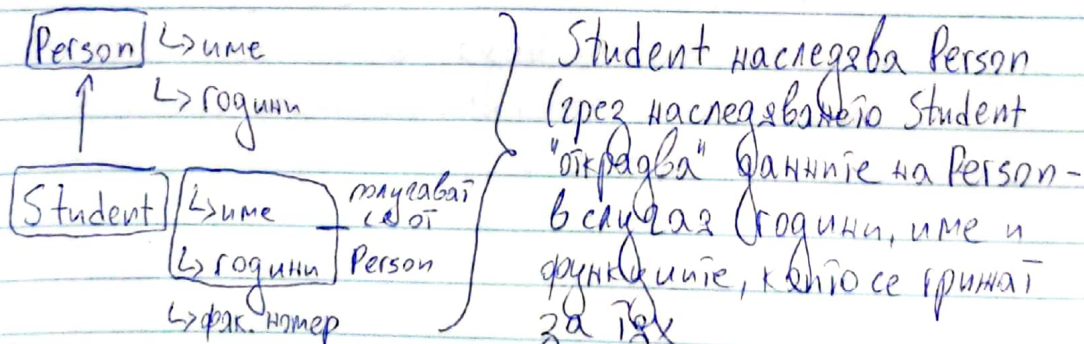 Person ↳ име
↳ години
Student ↳ име
↳ години
↳ фак. номер
получават
се от
Person
Student наследява Person
(чрез наследяването Student
"открадва" данните на Person -
в случая (години, име и
функциите, който се грижат
за тях